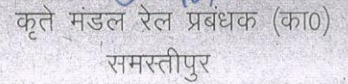 कृते मंडल रेल प्रबंधक (का0)
समस्तीपुर